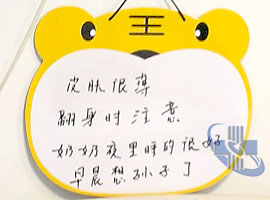 王
皮肤很薄
翻身时注意
奶奶夜里睡的很好
早晨想孙子了